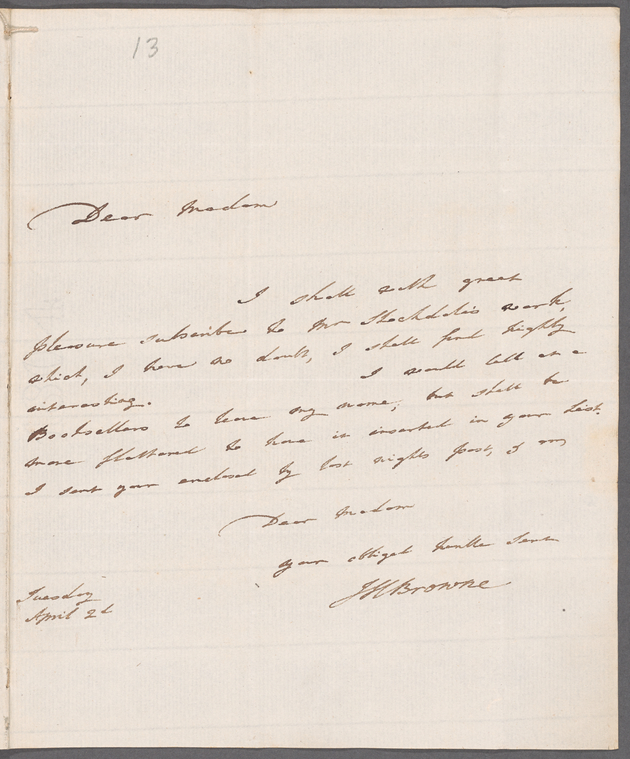 13
Dear Madam
I shall with great
pleasure subscribe to Mr Stockdale's work,
which, I have no doubt, I shall find highly
interesting. I would call at a
Booksellers to leave my name, but shall be
more flattered to have it inserted in your List.
I sent your enclosed by last nights post, & am
Dear Madam
your obliged humble Servt
JHBrowne
Tuesday
April 2d